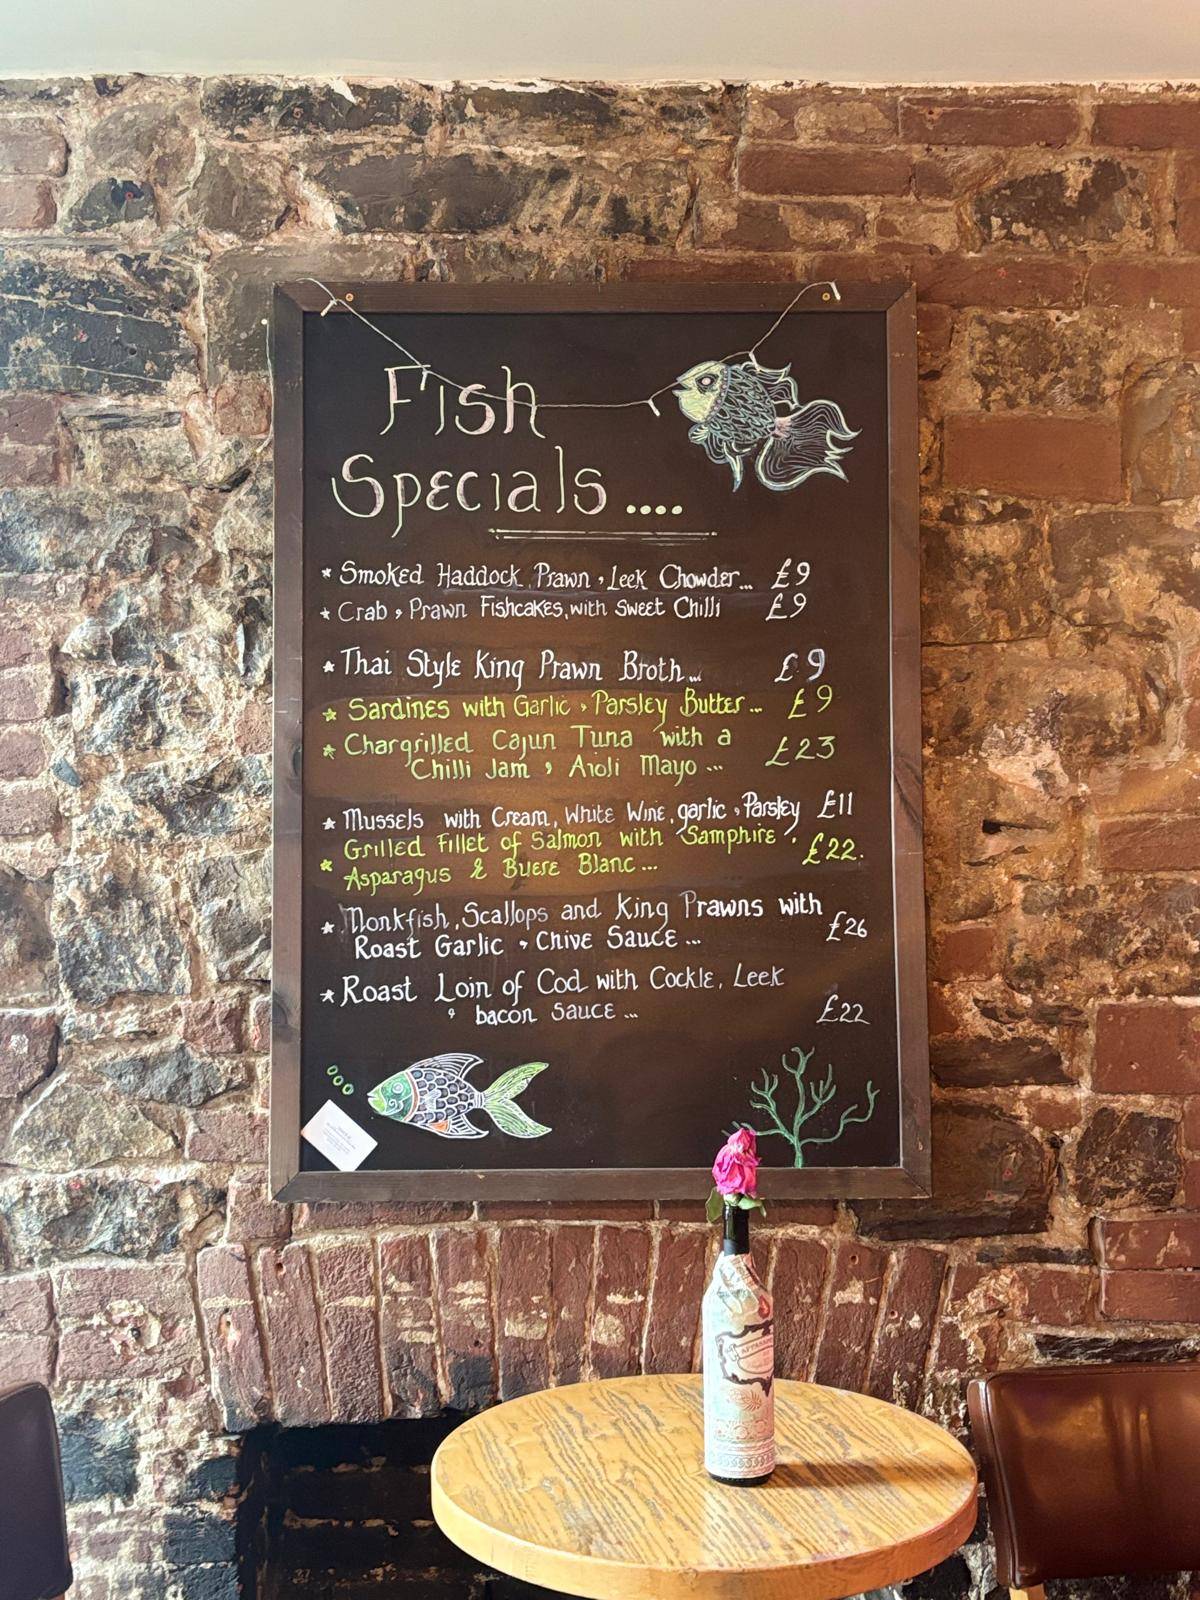 Fish
Specials....
* Smoked Haddock, Prawn, Leek Chowder... £9
* Crab, Prawn Fishcakes, with Sweet Chilli £9
* Thai Style King Prawn Broth... £9
* Sardines with Garlic, Parsley Butter... £9
* Chargrilled Cajun Tuna with a £23
Chilli Jam, Aioli Mayo...
* Mussels with Cream, White Wine, garlic, Parsley £11
Grilled fillet of Salmon with Samphire, £22.
* Asparagus & Buere Blanc...
* Monkfish, Scallops and King Prawns with £26
Roast Garlic, Chive Sauce...
* Roast Loin of Cod with Cockle, Leek
, bacon Sauce... £22